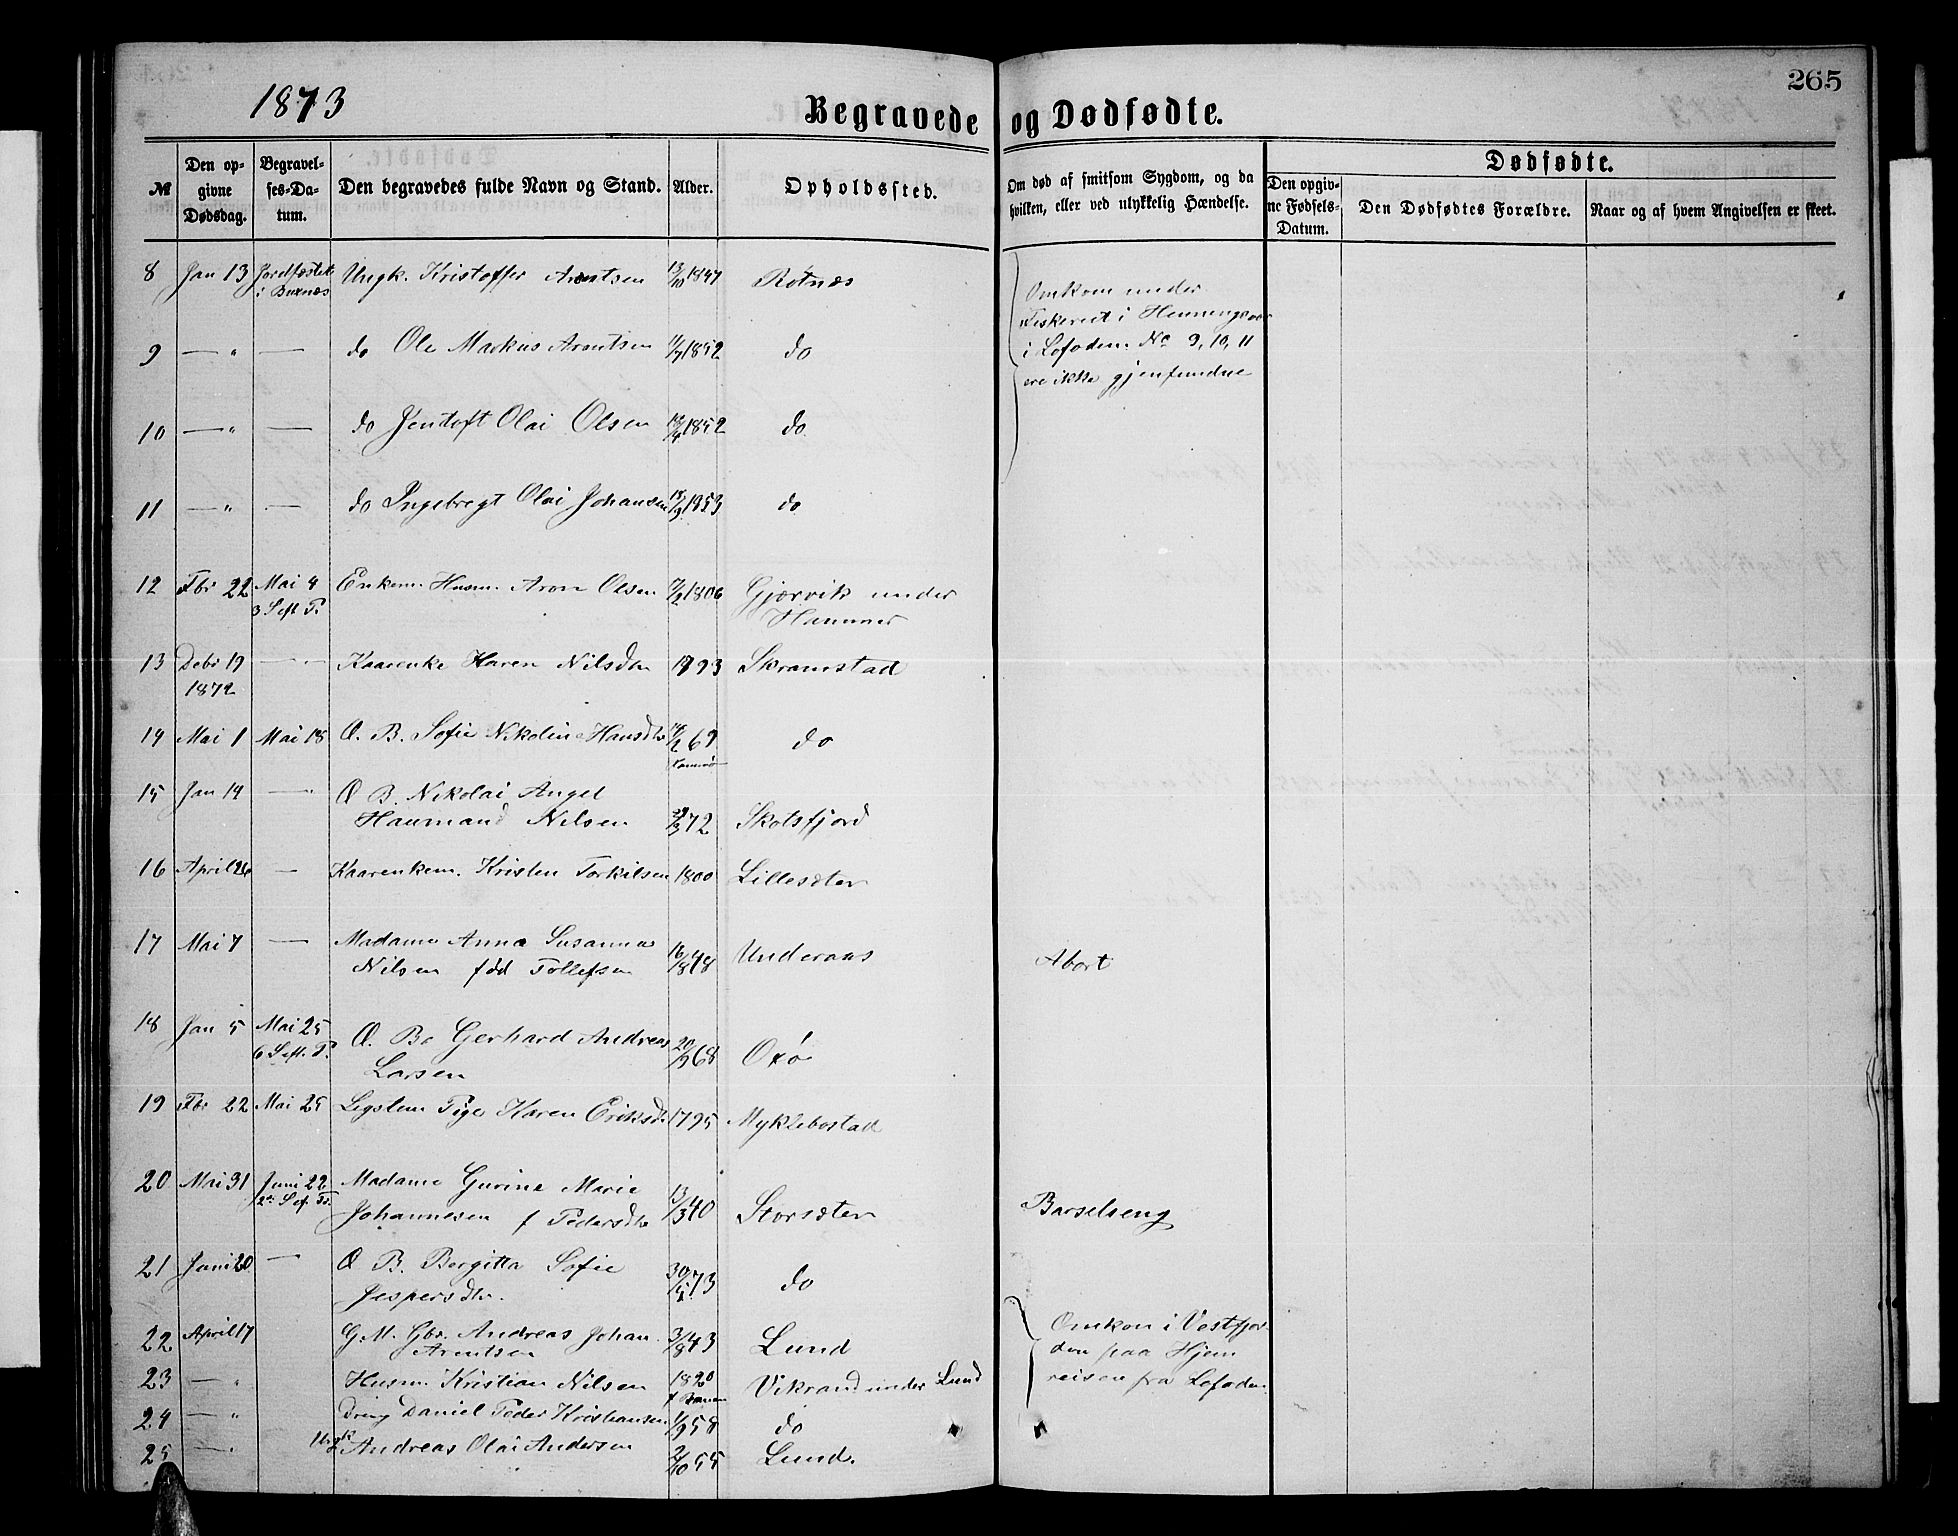 265
1873
Begravede og Dødfødte.
№
Den opgivne Dødsdag.
Begravelses-Datum.
Den begravedes fulde Navn og Stand.
Alder.
Opholdssted.
Om død af smitsom Sygdom, og da hvilken, eller ved ulykkelig Hændelse.
Dødfødte.
Den opgivne Fødsels-Datum.
Den Dødfødtes Forældre.
Naar og af hvem Angivelsen er skeet.
8 Jan 13 Jordfæstet Ungk. Kristoffer Arentsen 13/10 1847 Rotnæs
i Buxnæs
Omkom under
Fiskeriet i Henningsvær
i Lofoden. No 9, 10, 11
ere ikke gjenfundne
9 — " — do Ole Markus Arentsen 1852 do
10 — " — do Jentoft Olai Olsen 1852 do
11 — " — do Ingebregt Olai Johansen 1853 do
12 Fbr 22 Mai 4 Enkem. Husm. Aron Olsen 1806 Gjærvik under
3 S eft P. Hammer
13 Debr 19 — " Kaarenke Karen Nilsdtr 1793 Skramstad
1872
14 Mai 1 Mai 18 Æ. B. Sofie Nikoline Hansdtr 69 do
15 Jan 14 — " Æ B. Nikolai Angel
Haumand Nilsen 72 Skotsfjord
16 April 26 — Kaarenkem. Kristen Torkilsen 1800 Lillesæter
17 Mai 7 — Madame Anna Susanna
Nilsen fød Tollefsen 16/8 48 Underaas Abort
18 Jan 5 Mai 25 Æ. B. Gerhard Andreas
6 S eft. P. Larsen 20/9 68 Oxø
19 Fbr 22 Mai 25 Legslem Pige Karen Eriksdtr 1795 Myklebostad
20 Mai 31 Juni 22 Madame Gurine Marie
2n S ef. Tr. Johannesen f Pedersdtr 13/3 40 Storsæter Barselseng
21 Juni 20 — Æ B. Bergitta Sofie
Jespersdtr. 73 do
22 April 17 G. M. Gbr. Andreas Johan
Arentsen 3/8 43 Lund
Omkom i Vestfjor-
den paa Hjem
reisen fra Lofoden
23 — " Husm. Kristian Nilsen 1820 Vikrand under Lund
24 — " Dreng Daniel Peder Kristiansen 1/9 58 do
25 — " Ungk Andreas Olai Andersen 2/10 55 Lund.